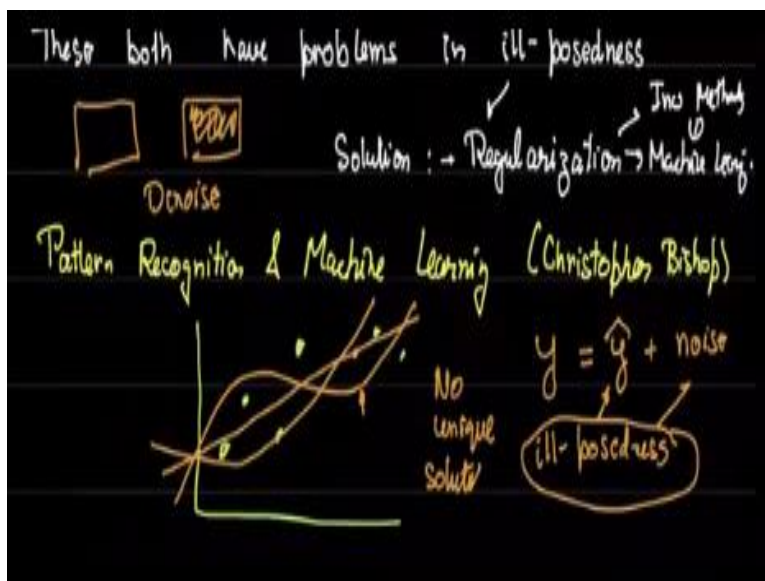 These both have problems in ill-posedness
Inv Methods
Solution :→ Regularization → Machine Learnig.
Denoise
Pattern Recognition & Machine Learning (Christopher Bishop)
y = ŷ + noise
No
unique
ill-posedness